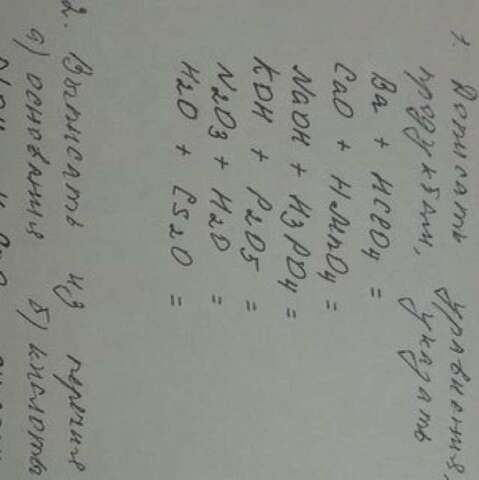 1. Дописать уравнения,
продуктам, указать
Ba + HClO4 =
CaO + HMnO4 =
NaOH + H3PO4 =
KOH + P2O5 =
N2O3 + H2O =
H2O + Cs2O =
2. Выписать из перечня
а) основания б) кислоты